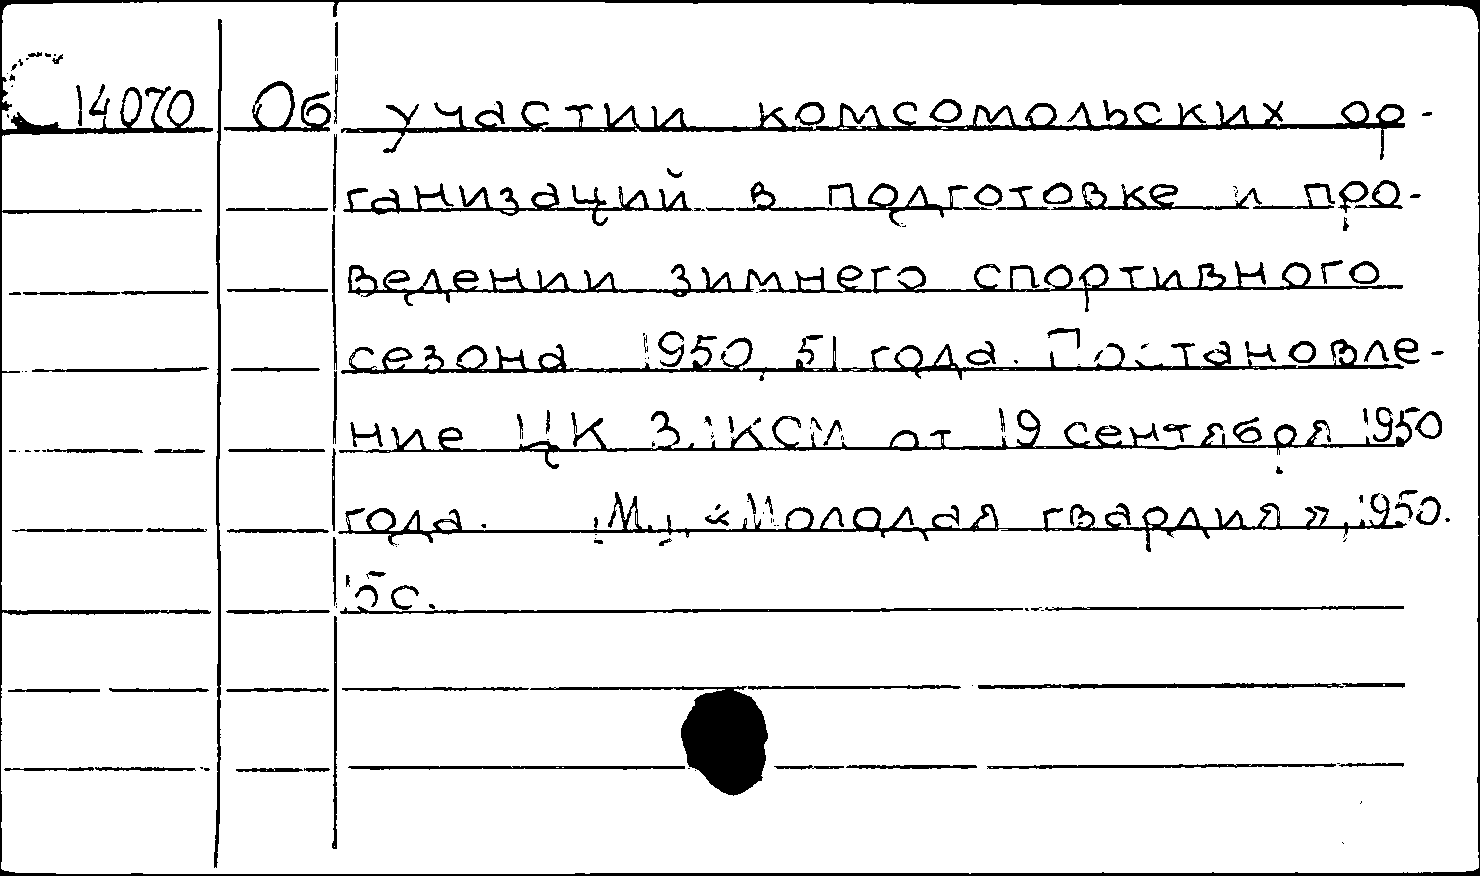 С 14070 Об участии комсомольских ор-
ганизаций в подготовке и про-
ведении зимнего спортивного
сезона 1950, 51 года. Постановле-
ние ЦК ВЛКСМ от 19 сентября 1950
года. М., «Молодая гвардия», 1950.
15 с.